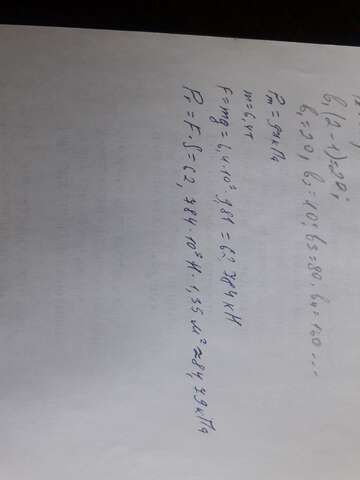 b₁(2-1)=20;
b₁=20; b₂=40; b₃=80. b₄=160...
Pₘ=94кПа
m=6,4т
F=mg=6,4·10³·9,81=62,784кН
P₁=F·S=62,784·10³Н·1,35м²≈84,79кПа